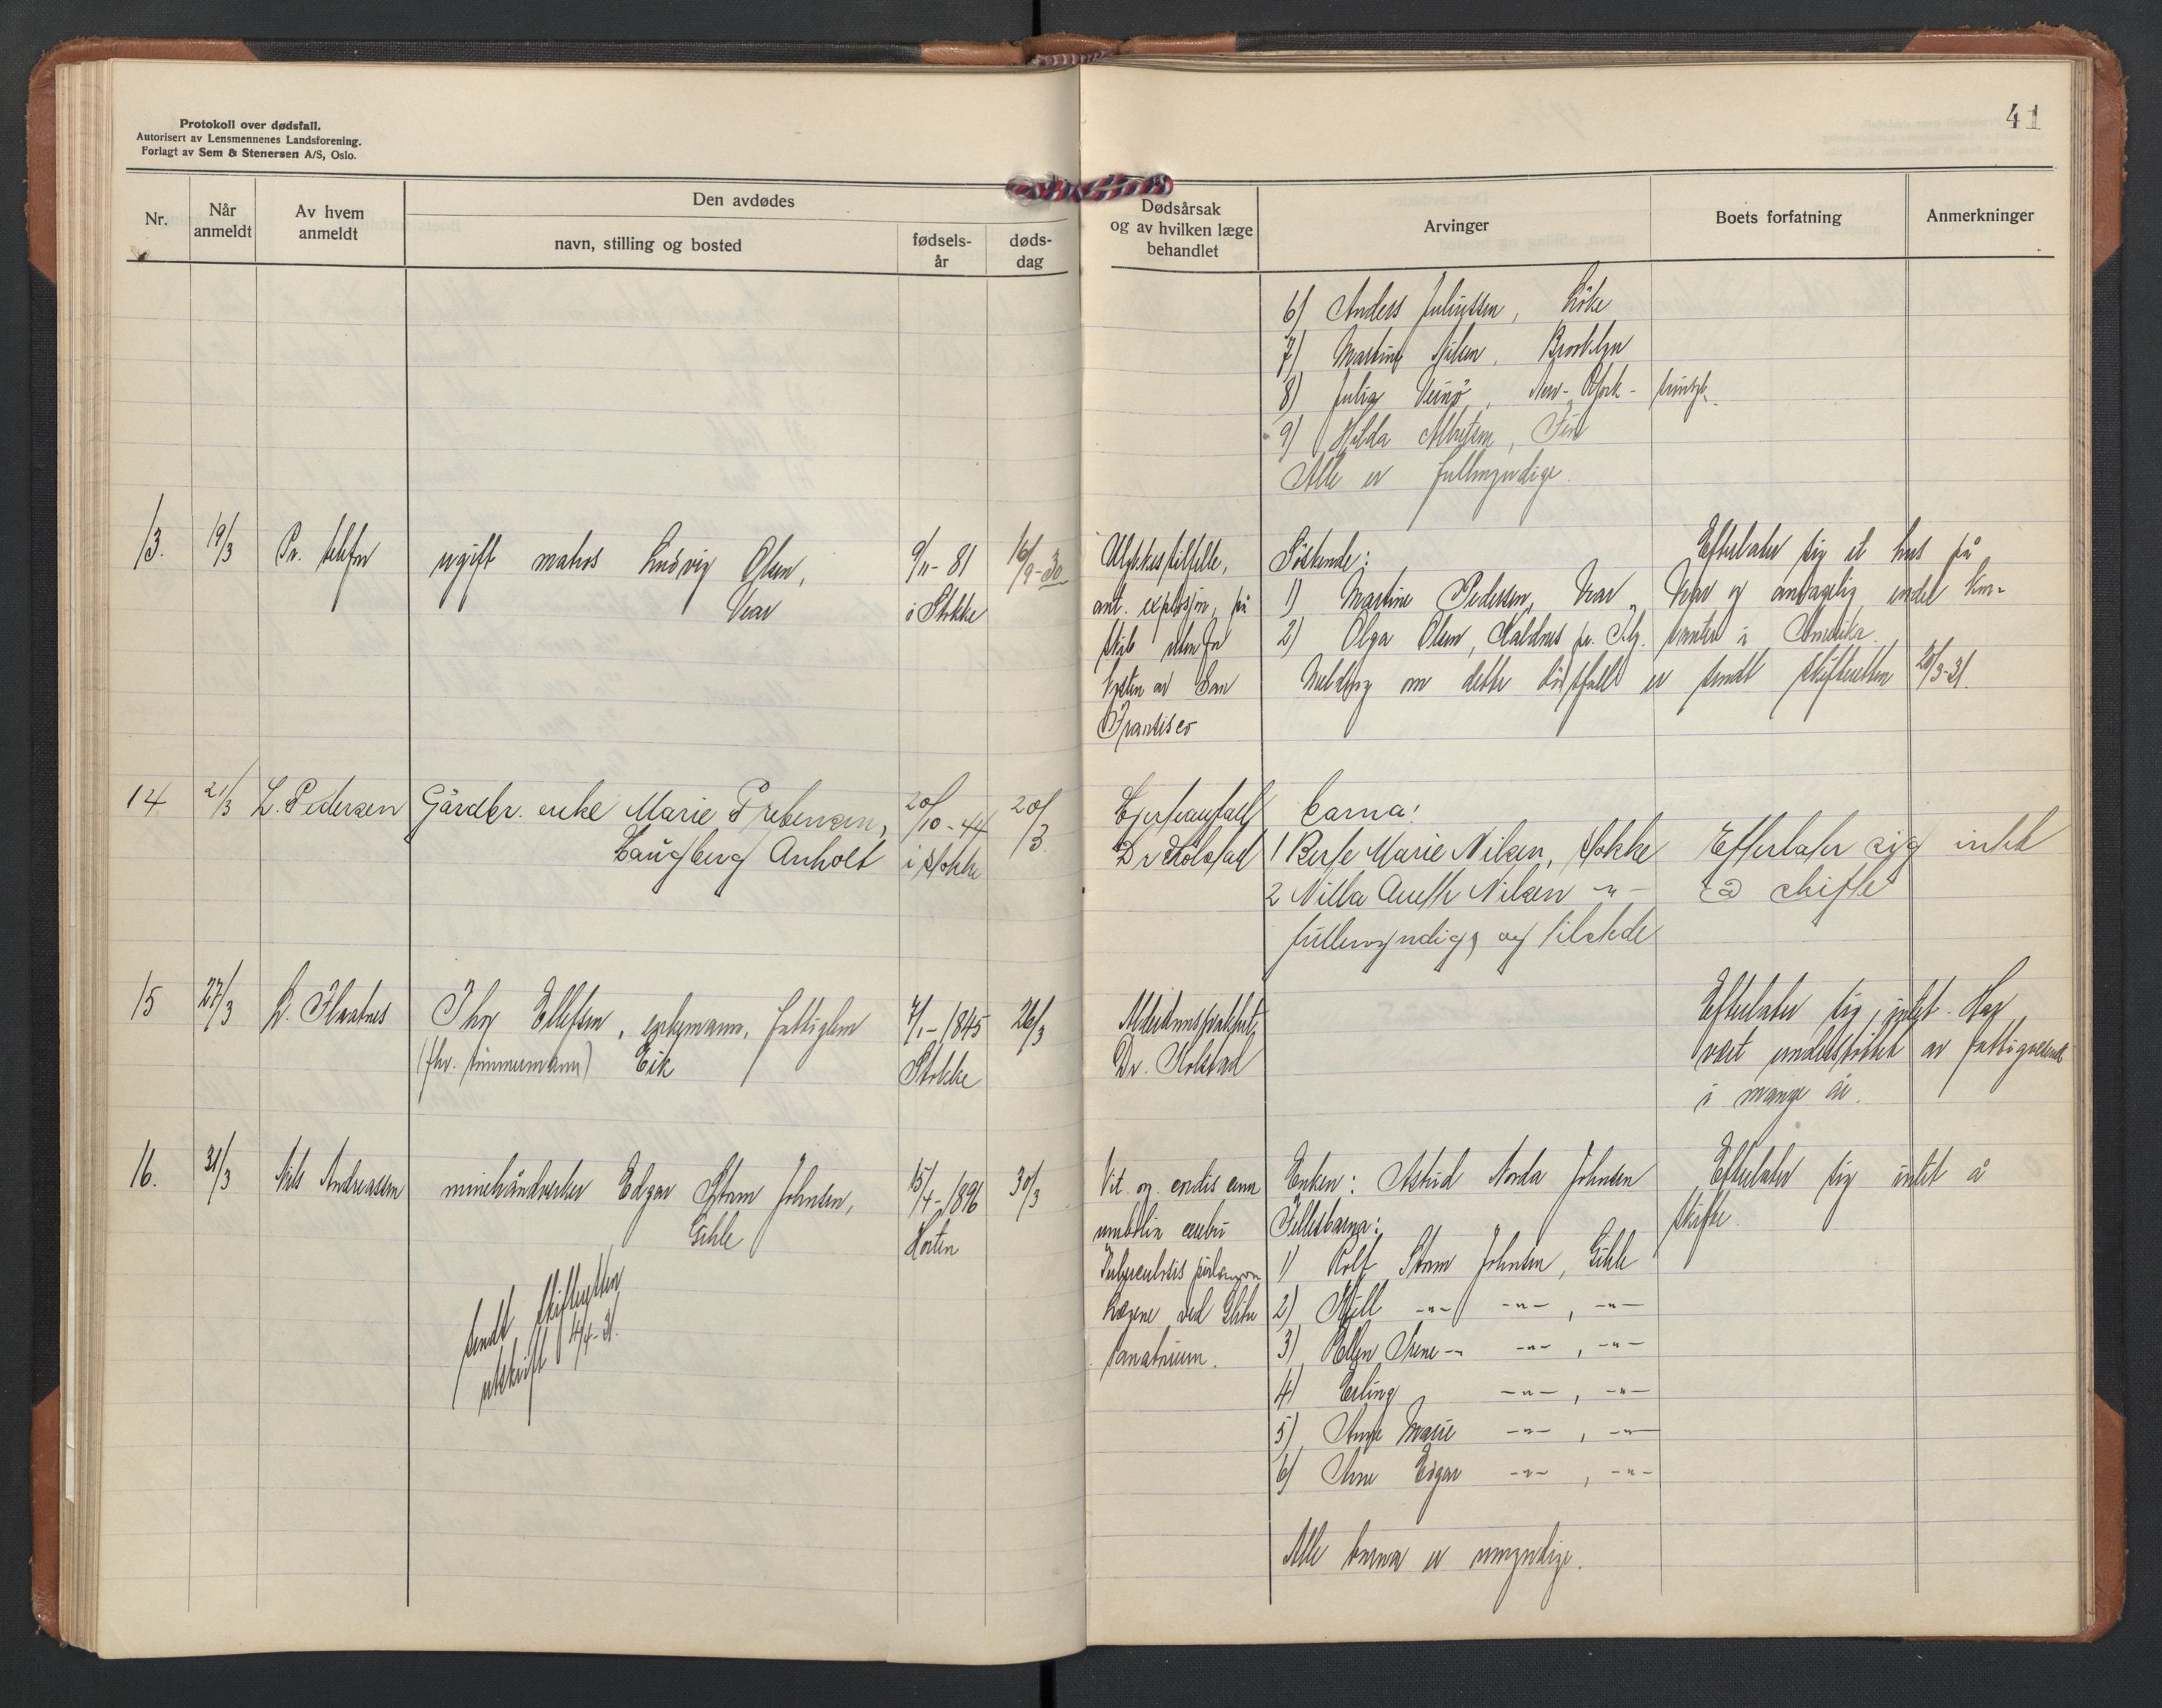 Protokoll over dødsfall.
Autorisert av Lensmennenes Landsforening.
Forlagt av Sem & Stenersen A/S, Oslo.
41
Nr.
Når anmeldt
Av hvem anmeldt
Den avdødes
navn, stilling og bosted
fødsels-år
døds-dag
Dødsårsak og av hvilken læge behandlet
Arvinger
Boets forfatning
Anmerkninger
6) Anders Juliussen,
7) Martine Nilsen, Brooklyn
8) New-York -
9) Hilda
Alle er fullmyndige.
13. 19/3 Pr. telefon
ugift matros Ludvig Olsen,
Vear
9/11-81
i Stokke
16/9-30
Ulykkestilfelle,
ant. explosjon, på
skib utenfor
kysten av San
Francisco
Søskende:
1) Martine Pedersen, Vear
2) Olga Olsen, Kaldnes pr. Tbg.
Melding om dette dødsfall er sendt skifteretten 20/3-31.
Efterlater sig et hus på
Vear og antagelig endel kon-
tanter i Amerika.
14 21/3 L. Pedersen
Gårdbr. enke Marie Prebensen,
Laugberg Anholt
20/10-44
i Stokke
20/3.
Hjerteanfall
Dr Holstad
Barna:
1 Berte Marie Nilsen, Stokke
2 Nilla Nilsen -"-
fullmyndig, og tilstede
Efterlater sig intet
å skifte
15 27/3
Thor Ellefsen, enkemann, fattiglem
(fhv. tømmermann) Eik
7/1-1845
Stokke
26/3
Alderdomssvakhet,
Dr. Holstad
Efterlater sig intet. Har
vært understøttet av fattigvesenet
i mange år.
16. 31/3 Nils Andreassen
minehåndverker Edgar Strøm Johnsen,
Gihle
15/4-1896
Horten
30/3
Vit. o.
Tuberculosis
Lægene ved Glitre
sanatorium.
Enken: Astrid Norda Johnsen
Fellesbarna:
1) Rolf Strøm Johnsen, Gihle
2) Kjell -"- -"-, -"-
3) Ellen Irene -"- -"-, -"-
4) Erling -"-, -"-
5) Anne Marie -"-, -"-
6) Arne Edgar -"-, -"-
Alle barna er umyndige.
Efterlater sig intet å
skifte.
Sendt skifteretten
utskrift 4/4-31.